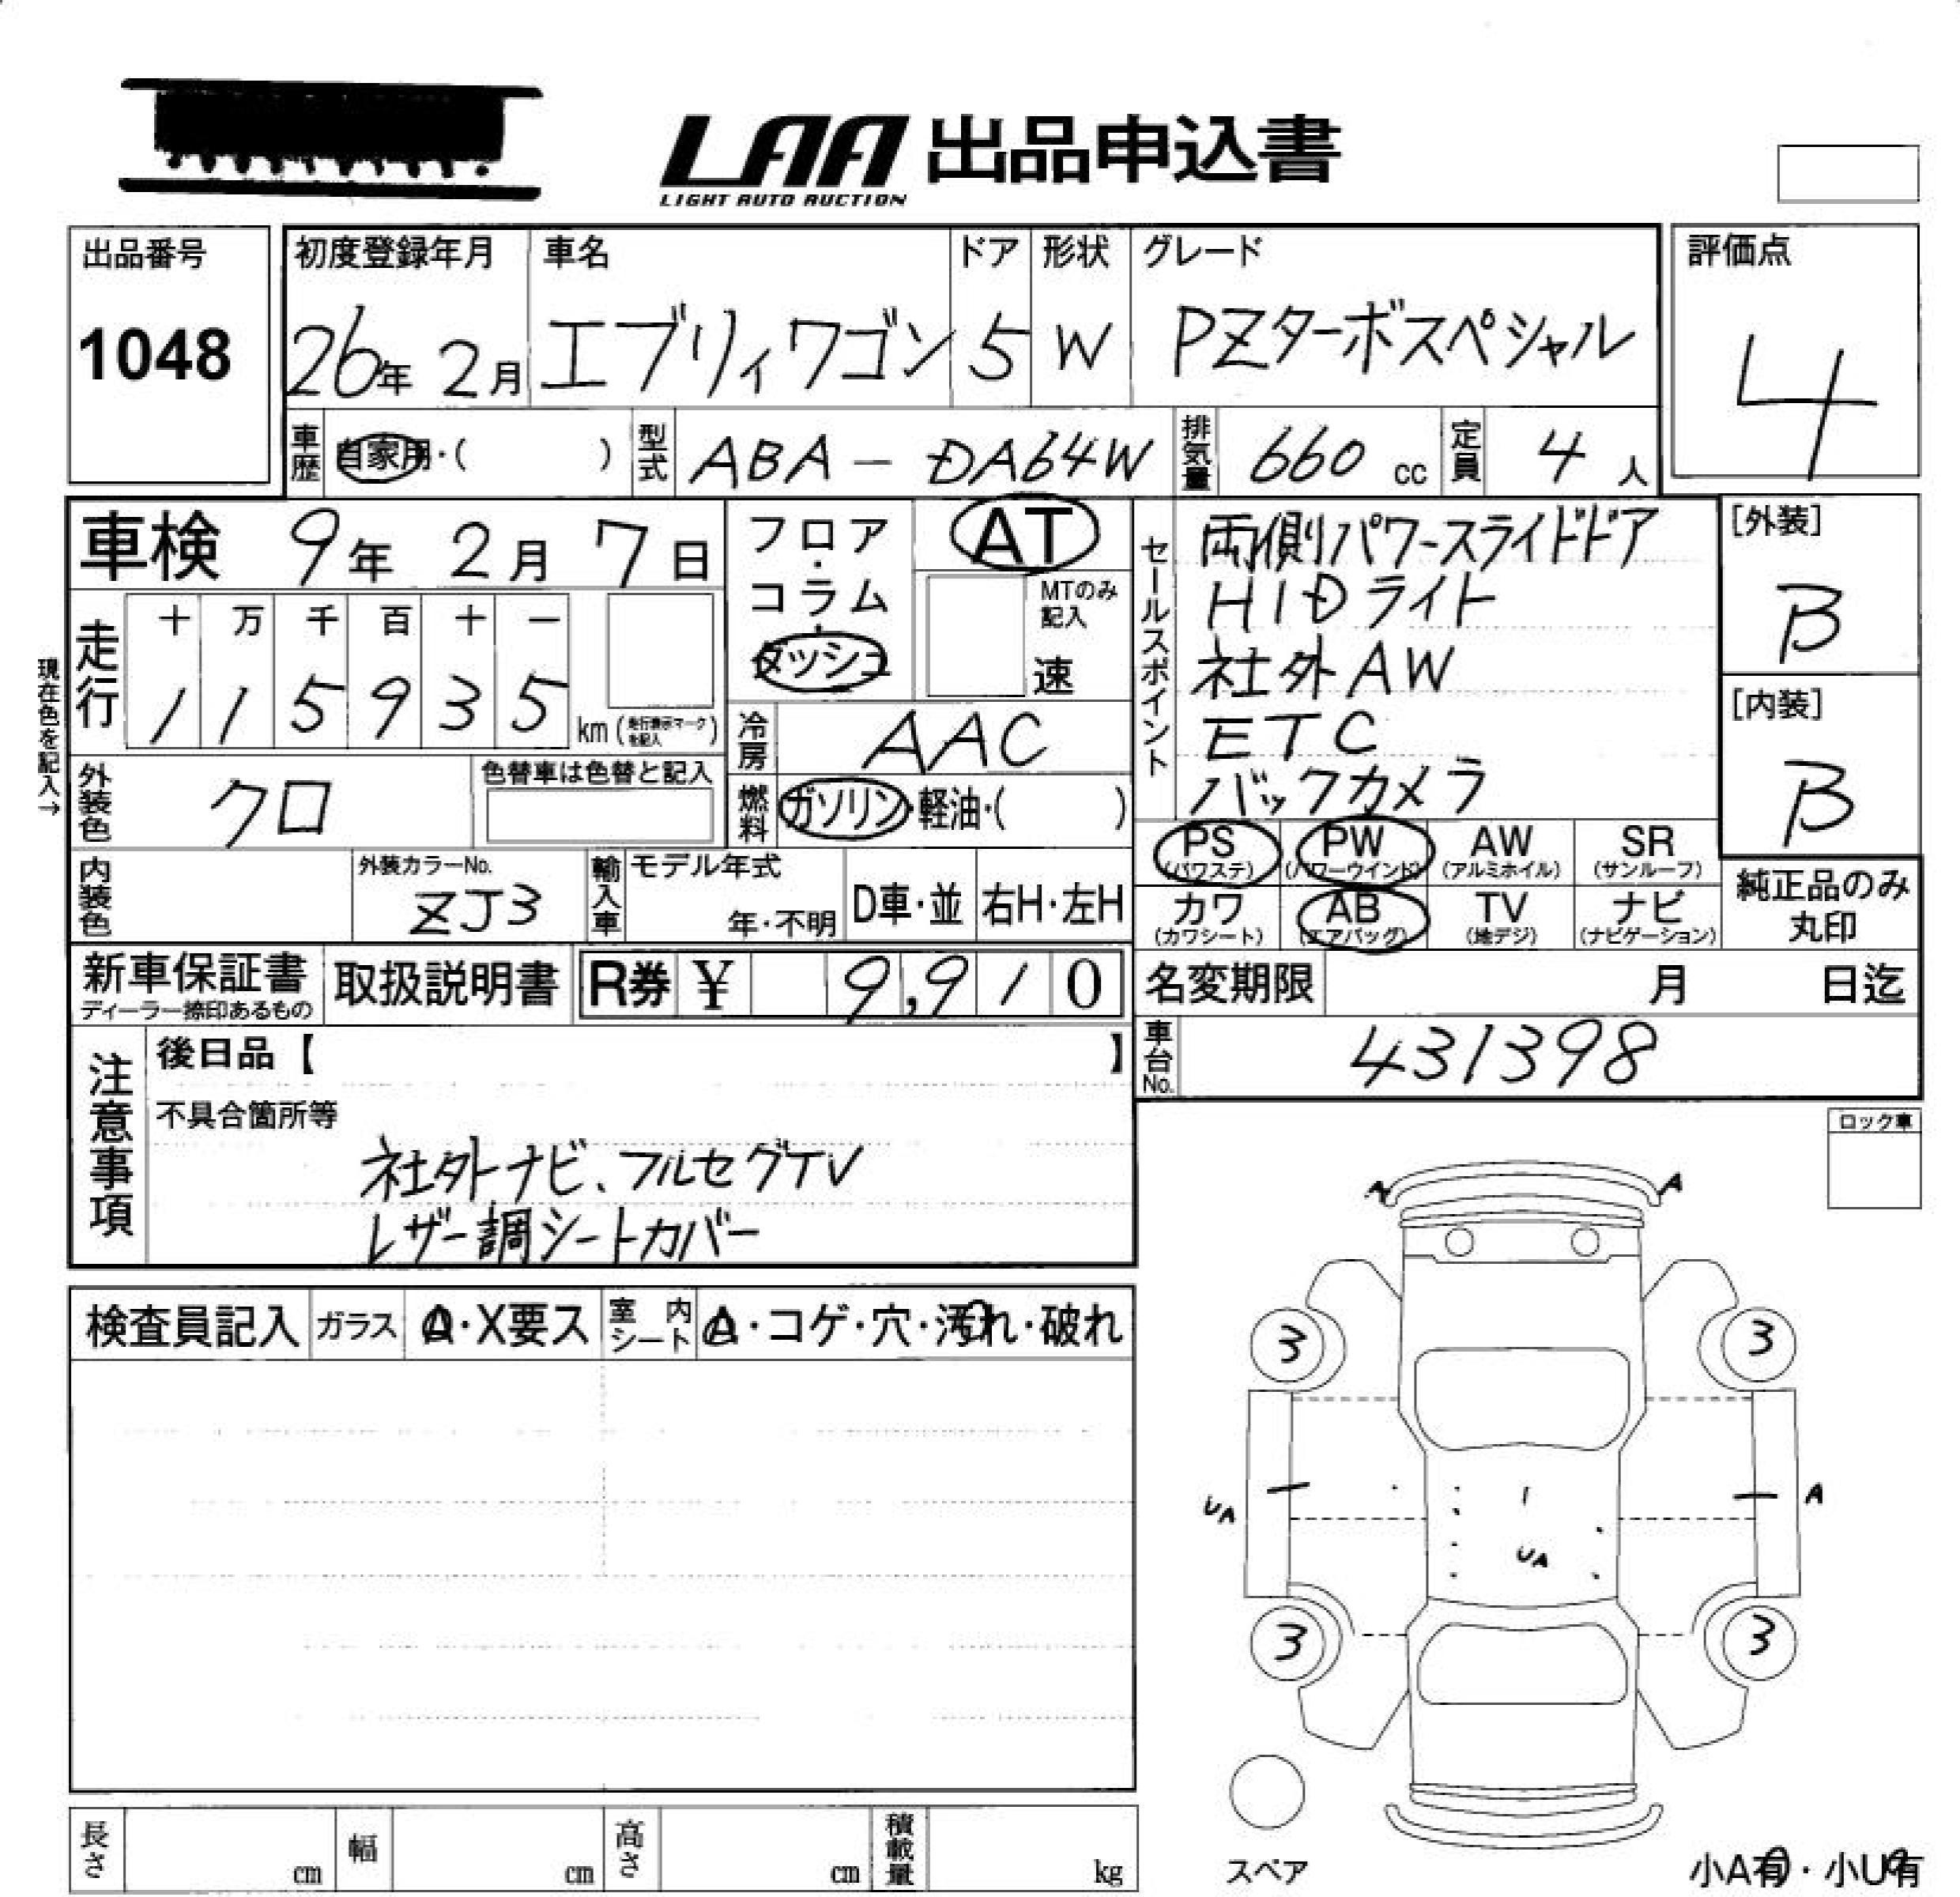 LAA 出品申込書
LIGHT AUTO AUCTION
出品番号
1048
初度登録年月
26年 2月
車名
エブリィワゴン
ドア
5
形状
W
グレード
PZターボスペシャル
評価点
4
車歴 自家用・( )
型式 ABA-DA64W
排気量 660 cc
定員 4 人
車検 9年 2月 7日
フロア・コラム・ダッシュ
AT
MTのみ記入
速
セールスポイント
両側パワースライドドア
HIDライト
社外AW
ETC
バックカメラ
[外装]
B
[内装]
B
現在色を記入→
走行
十 万 千 百 十 一
1 1 5 9 3 5 km (走行表示マークを記入)
冷房 AAC
外装色 クロ
色替車は色替と記入
燃料 ガソリン・軽油・( )
PS (パワステ)
PW (パワーウインド)
AW (アルミホイル)
SR (サンルーフ)
カワ (カワシート)
AB (エアバッグ)
TV (地デジ)
ナビ (ナビゲーション)
純正品のみ
丸印
内装色
外装カラーNo.
ZJ3
輸入車
モデル年式
年・不明
D車・並
右H・左H
新車保証書
ディーラー捺印あるもの
取扱説明書
R券 ¥ 9,910
名変期限 月 日迄
車台No. 431398
注意事項
後日品【 】
不具合箇所等
社外ナビ、フルセグTV
レザー調シートカバー
ロック車
検査員記入
ガラス A・X要ス
室内シート A・コゲ・穴・汚れ・破れ
A A
3 3
UA A
UA
3 3
スペア
小A有・小U有
長さ cm
幅 cm
高さ cm
積載量 kg